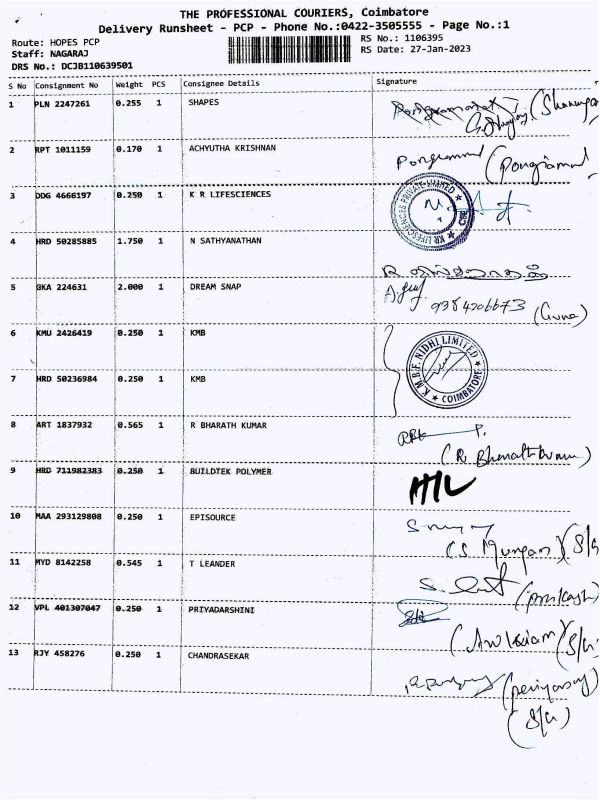 THE PROFESSIONAL COURIERS, Coimbatore
Delivery Runsheet - PCP - Phone No.:0422-3505555 - Page No.:1
Route: HOPES PCP
RS No.: 1106395
Staff: NAGARAJ
RS Date: 27-Jan-2023
DRS No.: DCJB110639501
S No Consignment No Weight PCS Consignee Details Signature
1 PLN 2247261 0.255 1 SHAPES
2 RPT 1011159 0.170 1 ACHYUTHA KRISHNAN
3 DDG 4666197 0.250 1 K R LIFESCIENCES
KR LIFESCIENCES PRIVATE LIMITED ★ CBE ★
4 HRD 50285885 1.750 1 N SATHYANATHAN
5 GKA 224631 2.000 1 DREAM SNAP
9384206673
(Guna)
6 KMU 2426419 0.250 1 KMB
K.M.B.F. NIDHI LIMITED ★ COIMBATORE ★
7 HRD 50236984 0.250 1 KMB
8 ART 1837932 0.565 1 R BHARATH KUMAR
9 HRD 711982383 0.250 1 BUILDTEK POLYMER
10 MAA 293129808 0.250 1 EPISOURCE
(S. Murugan) (S/G
11 MYD 8142258 0.545 1 T LEANDER
(prakash)
12 VPL 401307047 0.250 1 PRIYADARSHINI
(S/G)
13 RJY 458276 0.250 1 CHANDRASEKAR
(periyasamy)
(S/G)